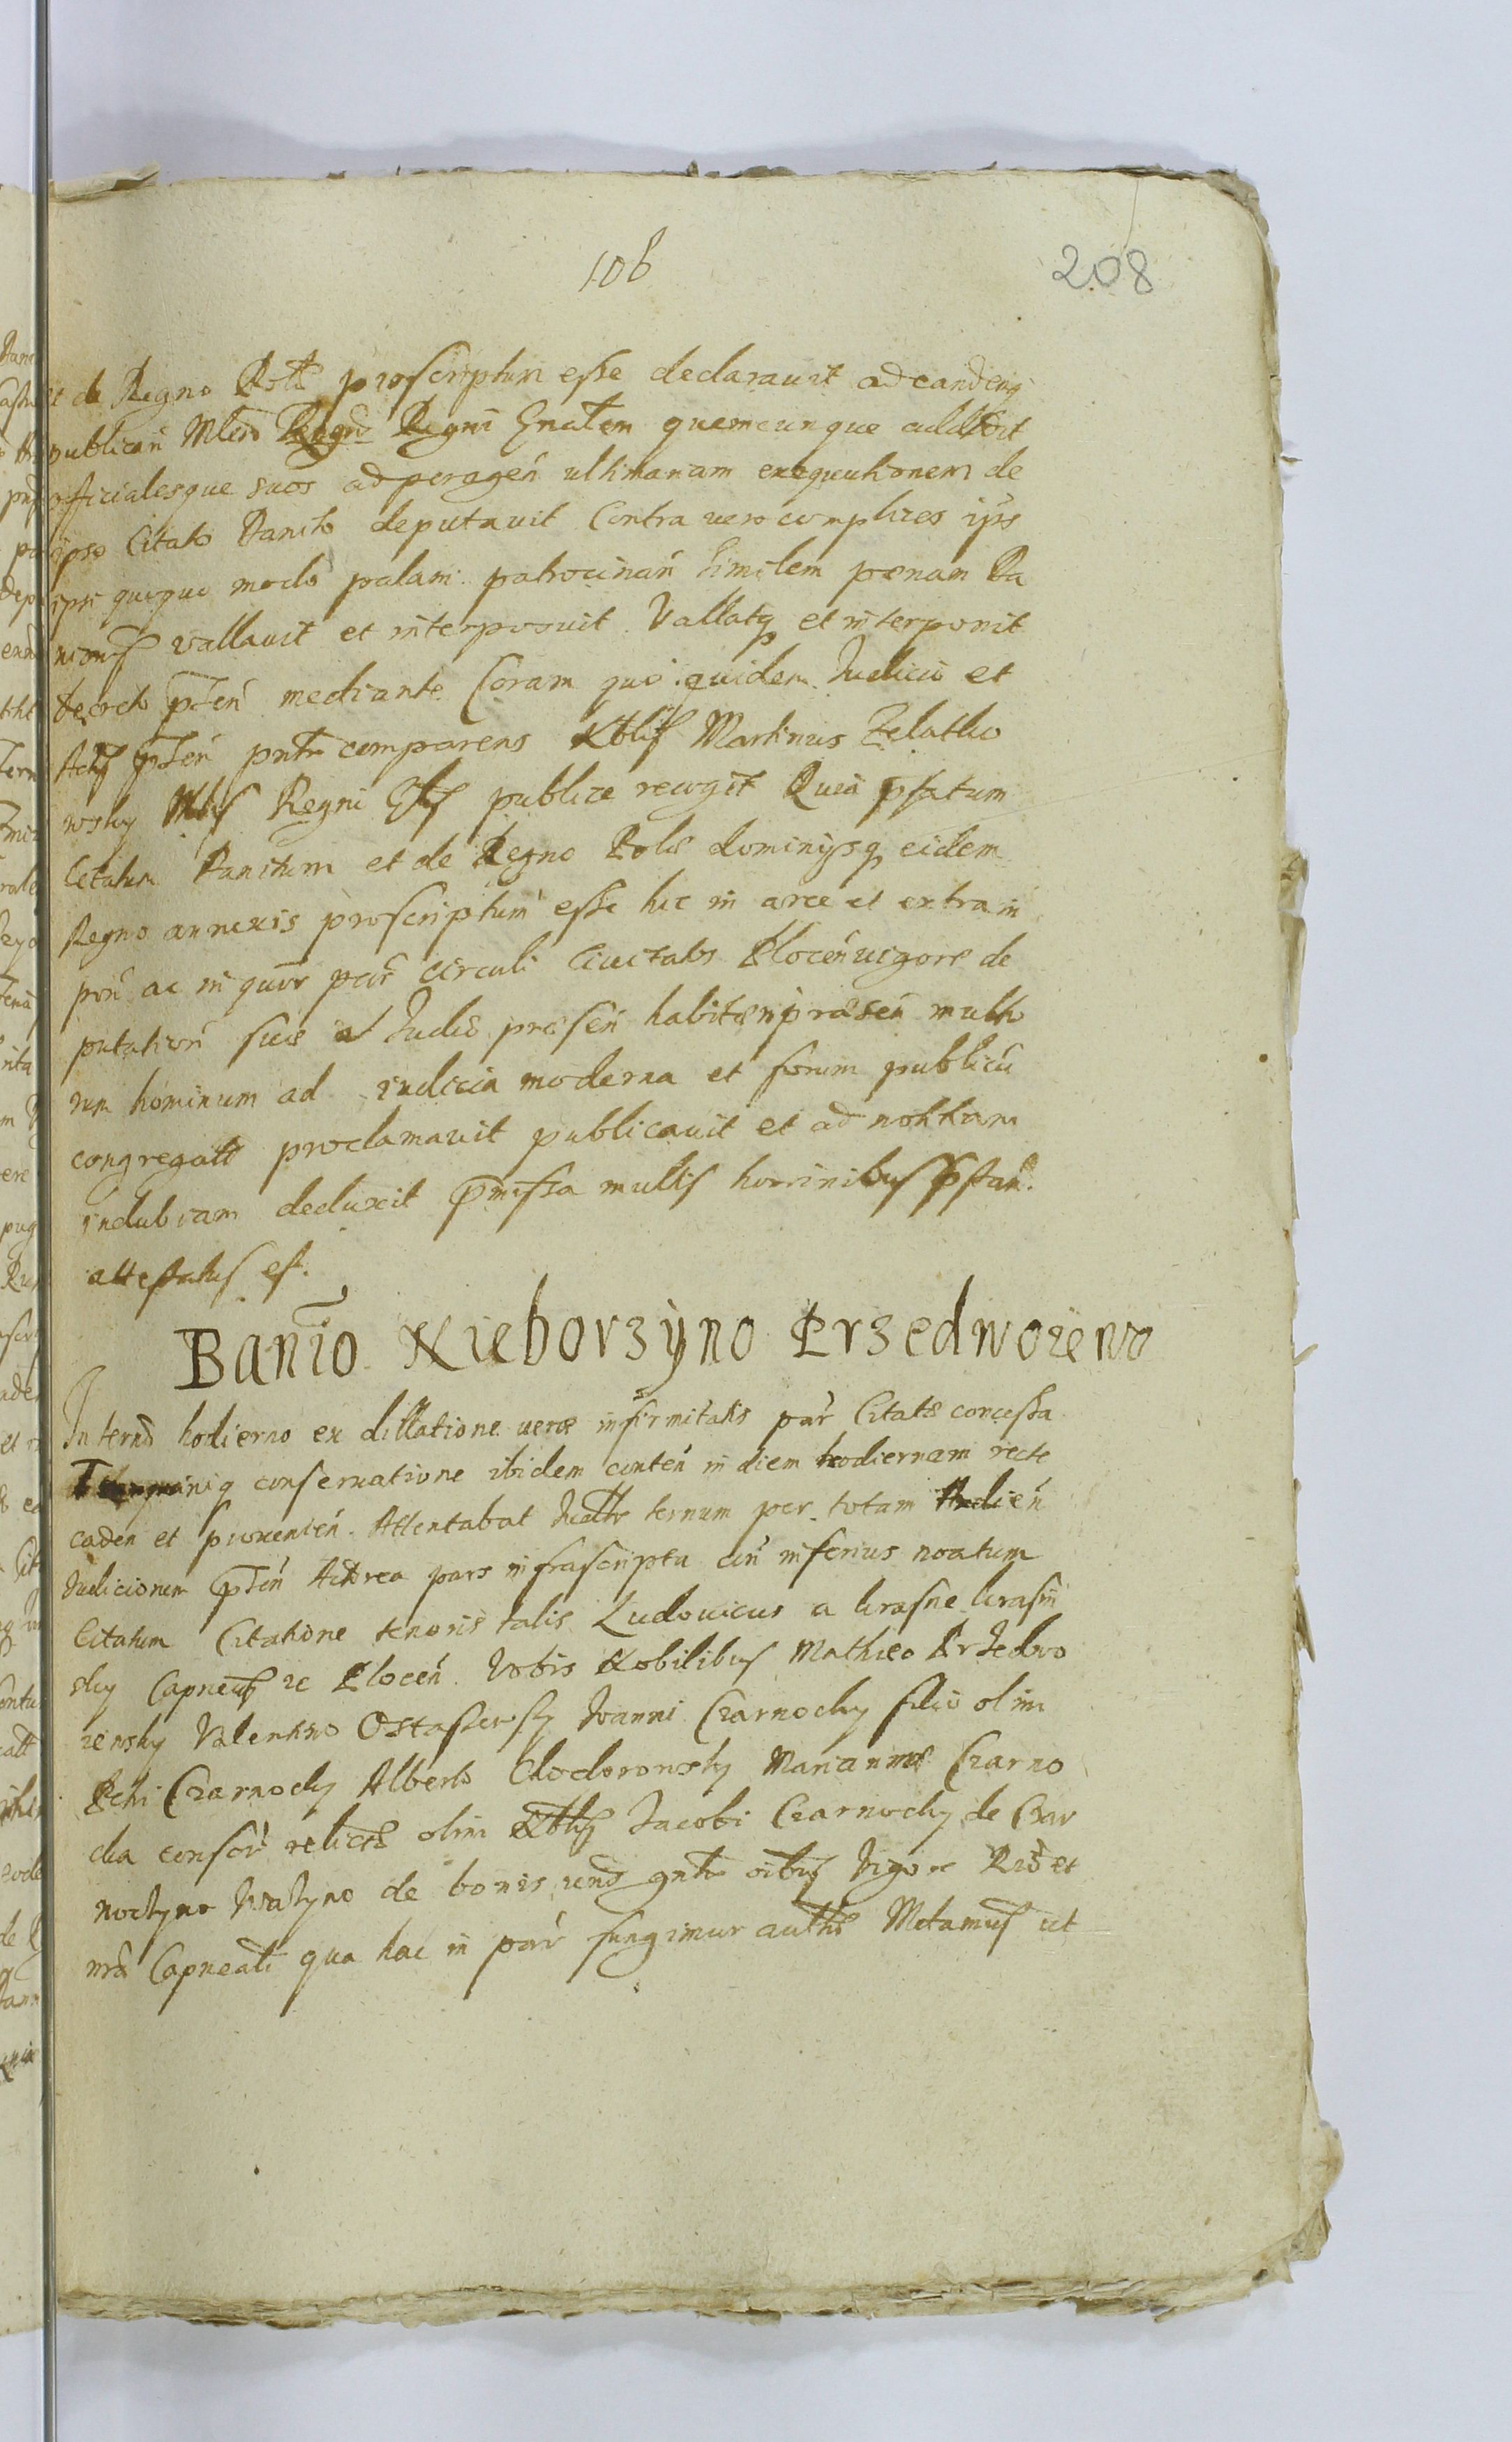 106
208
et de Regno Polæ proscriptum esse declaravit ad eandemq
publican Mlem Regni Gnalem quemcunque addidit
officialesque suos ad peragen ultimariam exequutionem de
ipso Citato Banito deputavit Contra vero complices ips
ipsi quoquo modo palam patrocinan similem pœnam Ba
nionis vallavit et interposuit Vallatq et interponit
decreto pnten mediante Coram quo quidem Judicio et
Actis pnten pntr comparens Nblis Martinus Zelatko
wsky Mlis Regni Glis publice recogit Quia pfatum
Citatum Banitum et de Regno Polæ dominijsq eidem
Regno annexis proscriptum esse hic in arce et extra in
pon ac in quor par circuli Civitatis Plocen vigore de
putation suæ a Judio præsen habitæ in præsen multo
rum hominum ad judicia moderna et forum publicu
congregat proclamavit publicavit et ad notitiam
indubiam deduxit pmissa multis hominibus pstan
attestatus est.
Banio Nieborzyno Przedwoiewo
In termo hodierno ex dillatione veræ infirmitatis par Citatæ concessa
conservatione ibidem conten in diem hodiernam recte
caden et provenien. Attentabat Judltr ternum per totam Audien
Judiciorum pnten Actorea pars infrascripta cum inferius noatum
Citatum Citatione tenoris talis Ludovicus a Krasne Krasin
sky Capneus zc Plocen Vobis Nobilibus Mathæo Przedwo
iewsky Valentino Ostaszewsky Joanni Czarnocky filio olim
Petri Czarnocky Alberto Chodorowsky Mariannæ Czarno
cka consor relictæ olim Nblis Jacobi Czarnocky de Czar
nockyno de bonis vris gntr oibus Vigore Rio et
nra Capneali qua hac in par fungimur authe Mdamus ut